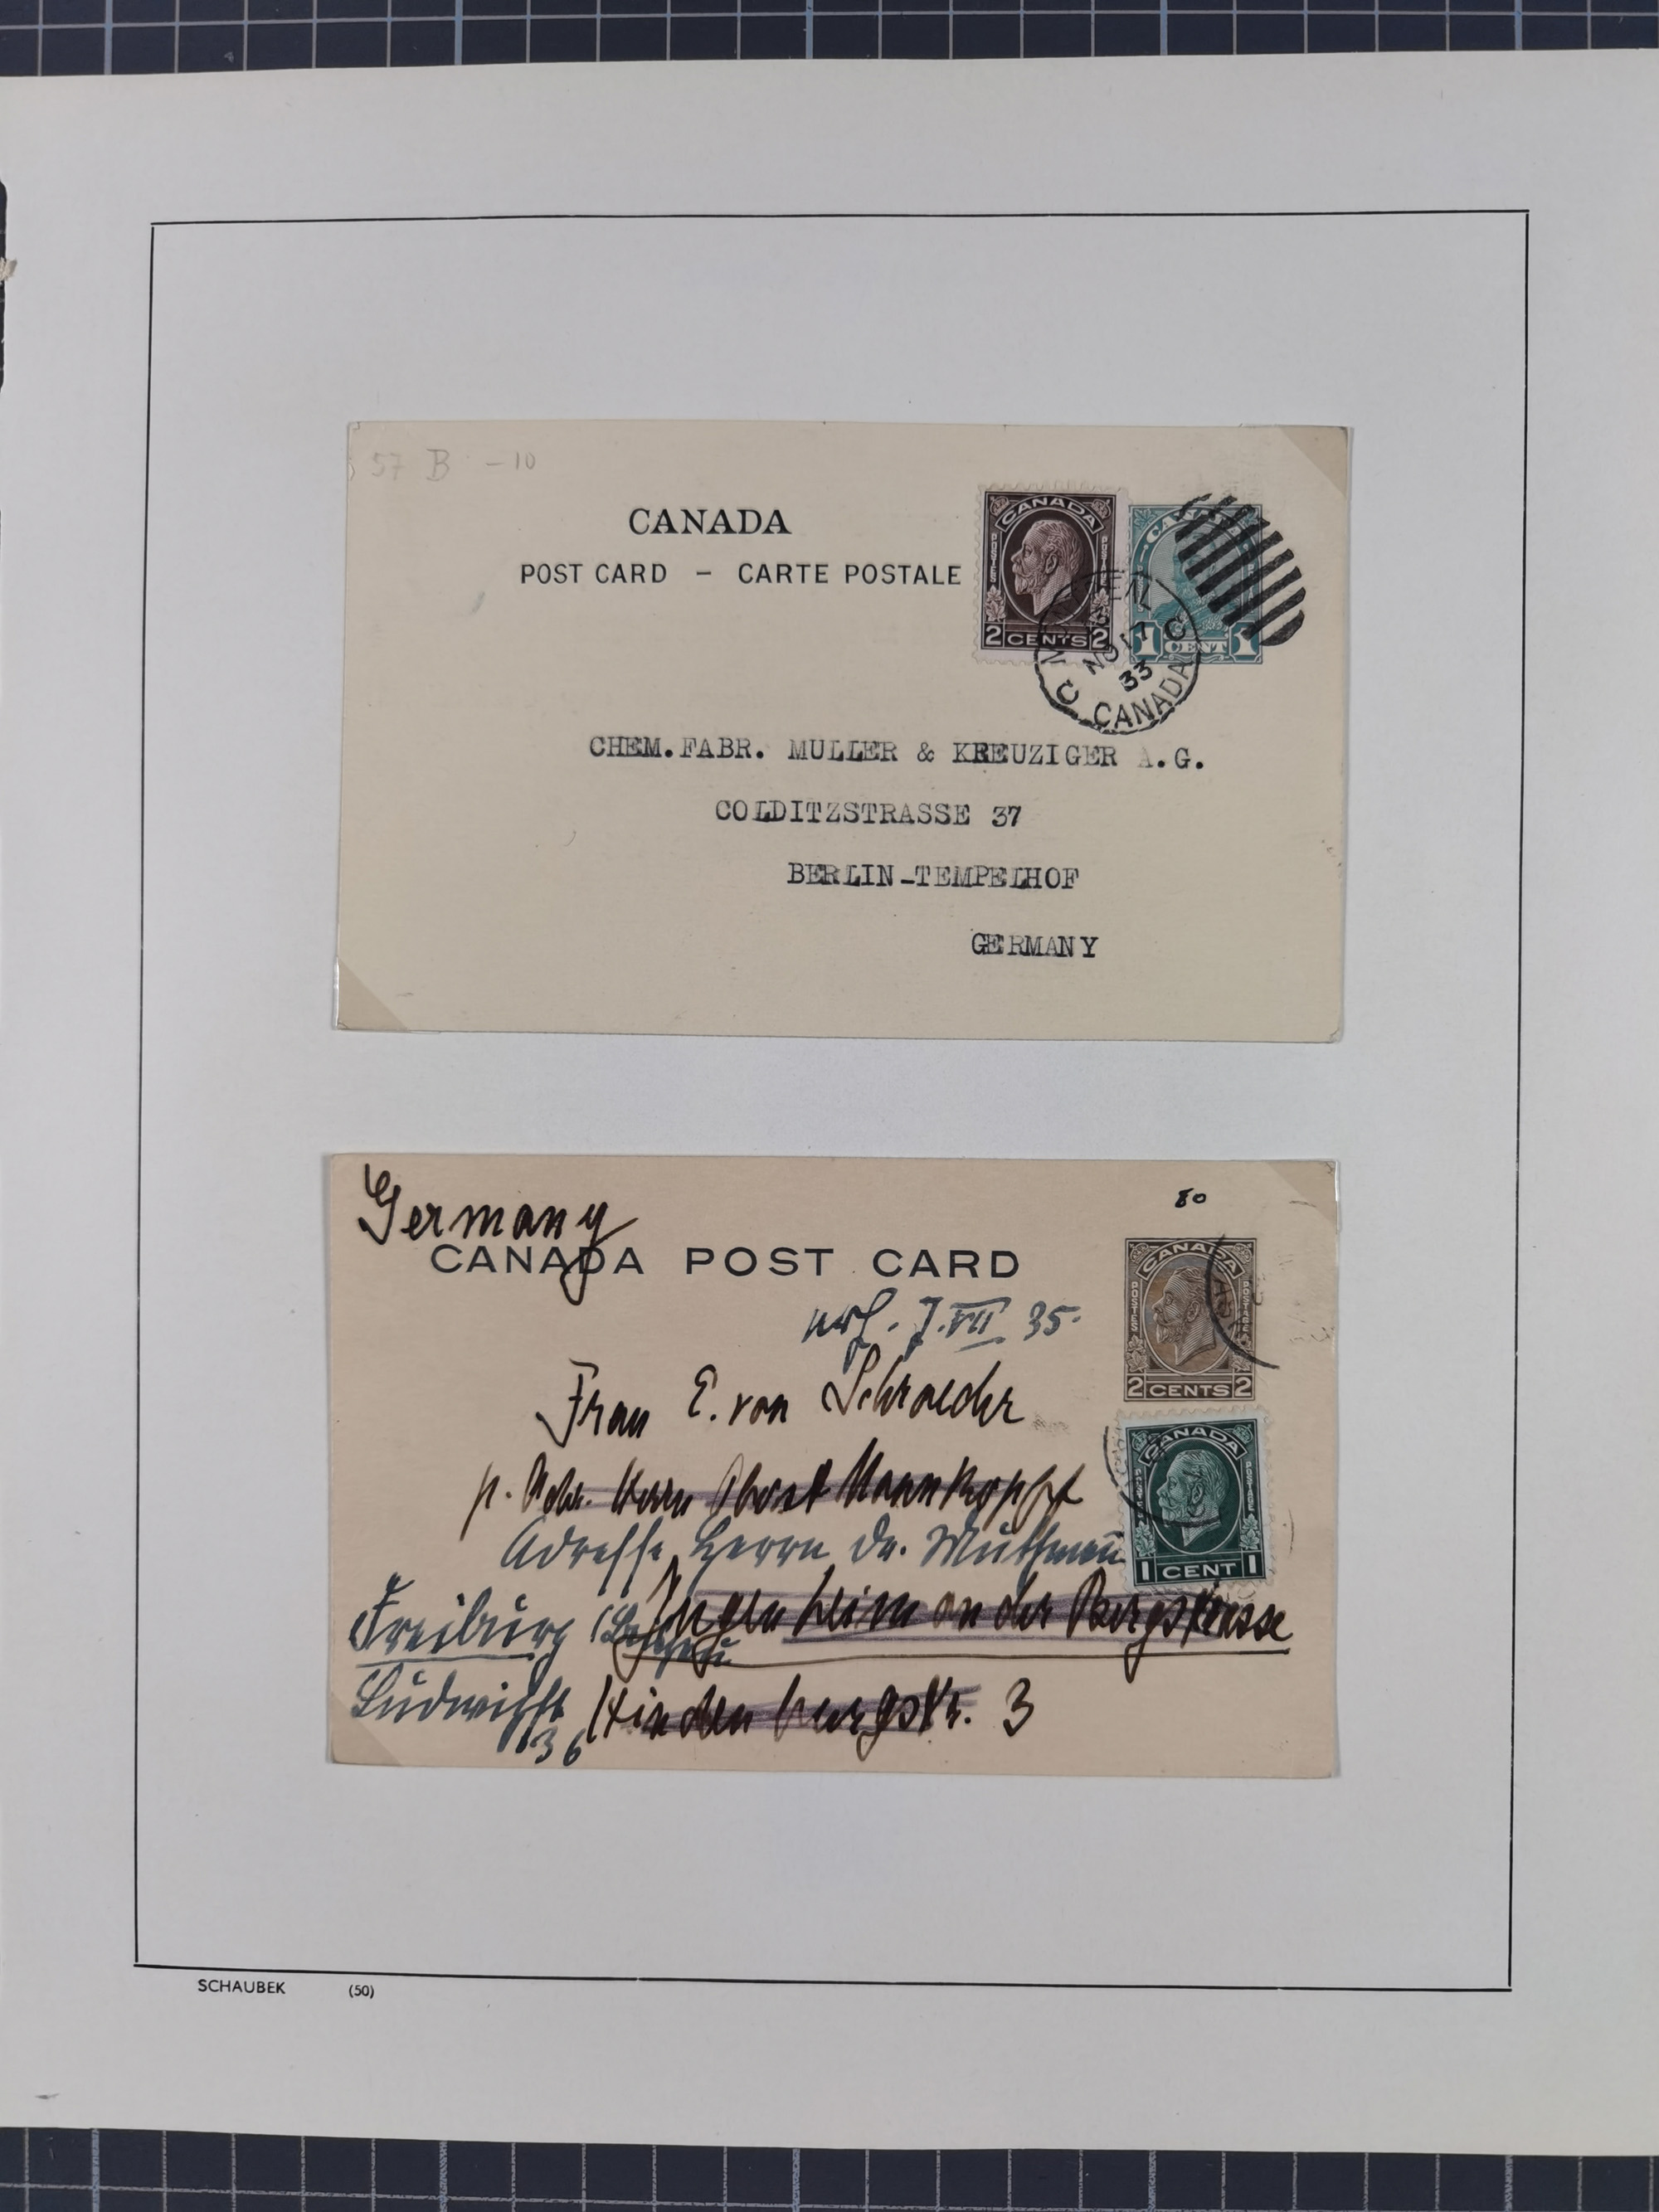 57 B -10
CANADA
POST CARD - CARTE POSTALE
CANADA
2 CENTS 2
1 CENT 1
NO 17
33
CANADA
CHEM.FABR. MULLER & KREUZIGER A.G.
COLDITZSTRASSE 37
BERLIN-TEMPELHOF
GERMANY
Germany
80
CANADA POST CARD
CANADA
POSTES POSTAGE
2 CENTS 2
35.
Frau E. von Schroeder
p. Adr. Herrn Oberst Mannkopff
CANADA
1 CENT 1
Adresse Herrn Dr.
Jugenheim an der Bergstrasse
Freiburg
Hindenburgstr. 3
36
SCHAUBEK (50)